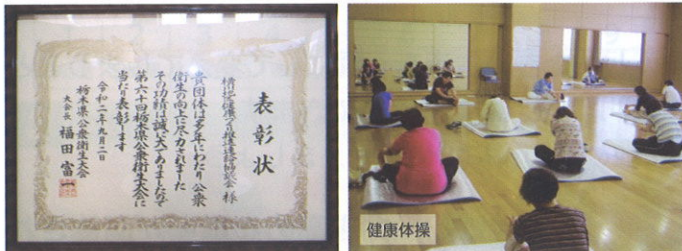 表彰状
横川地区健康づくり推進連絡協議会 様
貴団体は多年にわたり公衆
衛生の向上に尽力されました
その功績は誠に大でありますので
第六十回栃木県公衆衛生大会に
当たり表彰します
令和二年九月二日
栃木県公衆衛生大会
大会長 福田富一
健康体操